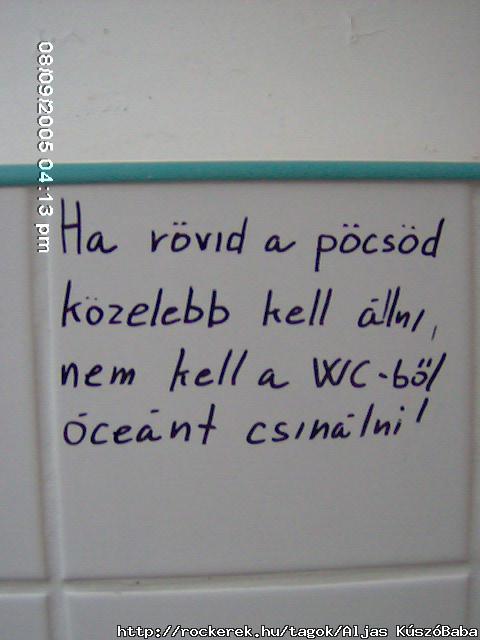 08/09/2005 04:13 pm
Ha rövid a pöcsöd
közelebb kell állni,
nem kell a WC-ből
óceánt csinálni!
http://rockerek.hu/tagok/Aljas KúszóBaba